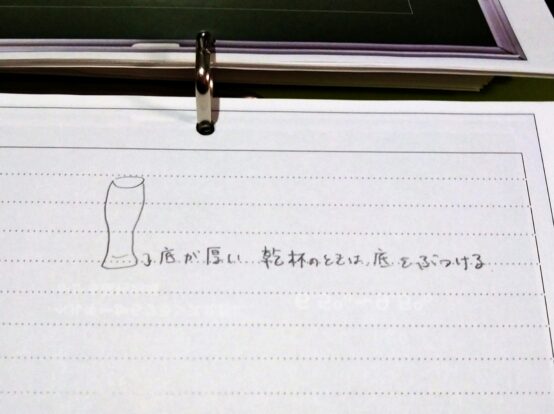 底が厚い 乾杯のときは、底をぶつける